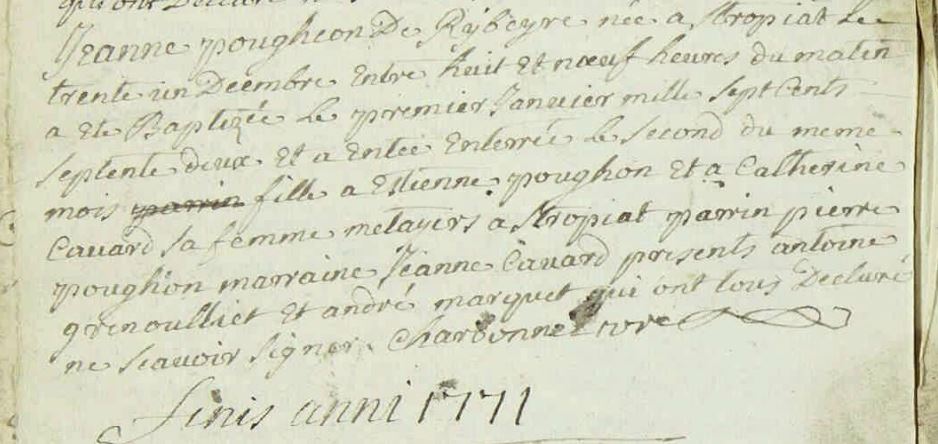 qui ont Declaré
Jeanne pougheon De Rybeyre née a Stropiat Le
trente un Decembre Entre huit Et nœuf heures du matin
a Ete Baptizée Le premier Janvier mille Sept Cents
septente deux Et a Entee Enterrée Le Second du meme
mois parrin fille a Estienne poughon Et a Catherine
Cavard Sa femme metayers a Stropiat parrin pierre
poughon marraine Jeanne Cavard presents antoine
grenoulliet Et andré marquet qui ont tous Declaré
ne scavoir signer. Charbonnel
finis anni 1771